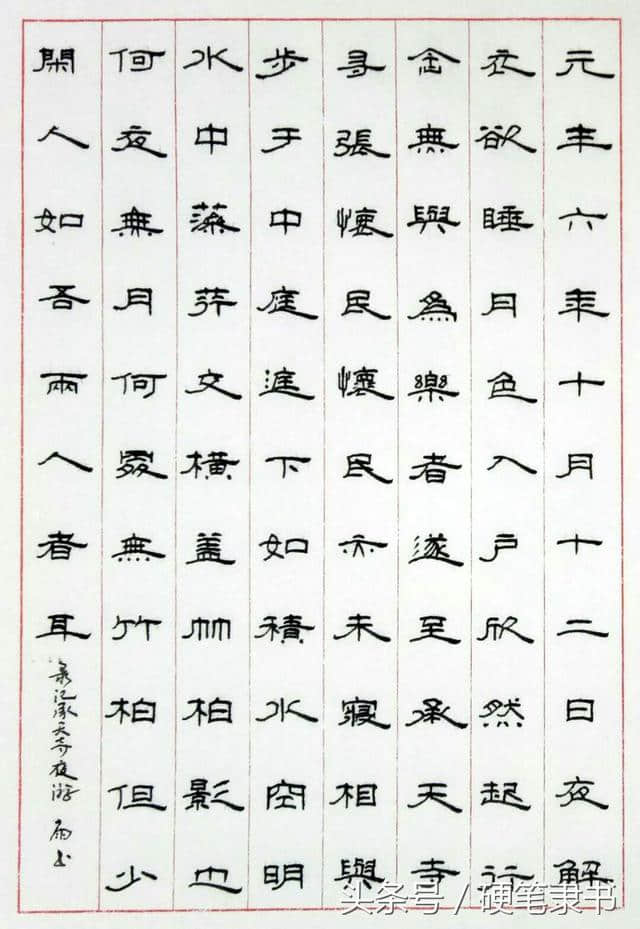 元丰六年十月十二日夜解
衣欲睡月色入户欣然起行
念無與爲樂者遂至承天寺
寻張懷民懷民亦未寢相與
步于中庭庭下如積水空明
水中藻荇交横蓋竹柏影也
何夜無月何處無竹柏但少
閑人如吾兩人者耳
录记承天寺夜游
头条号 / 硬笔隶书